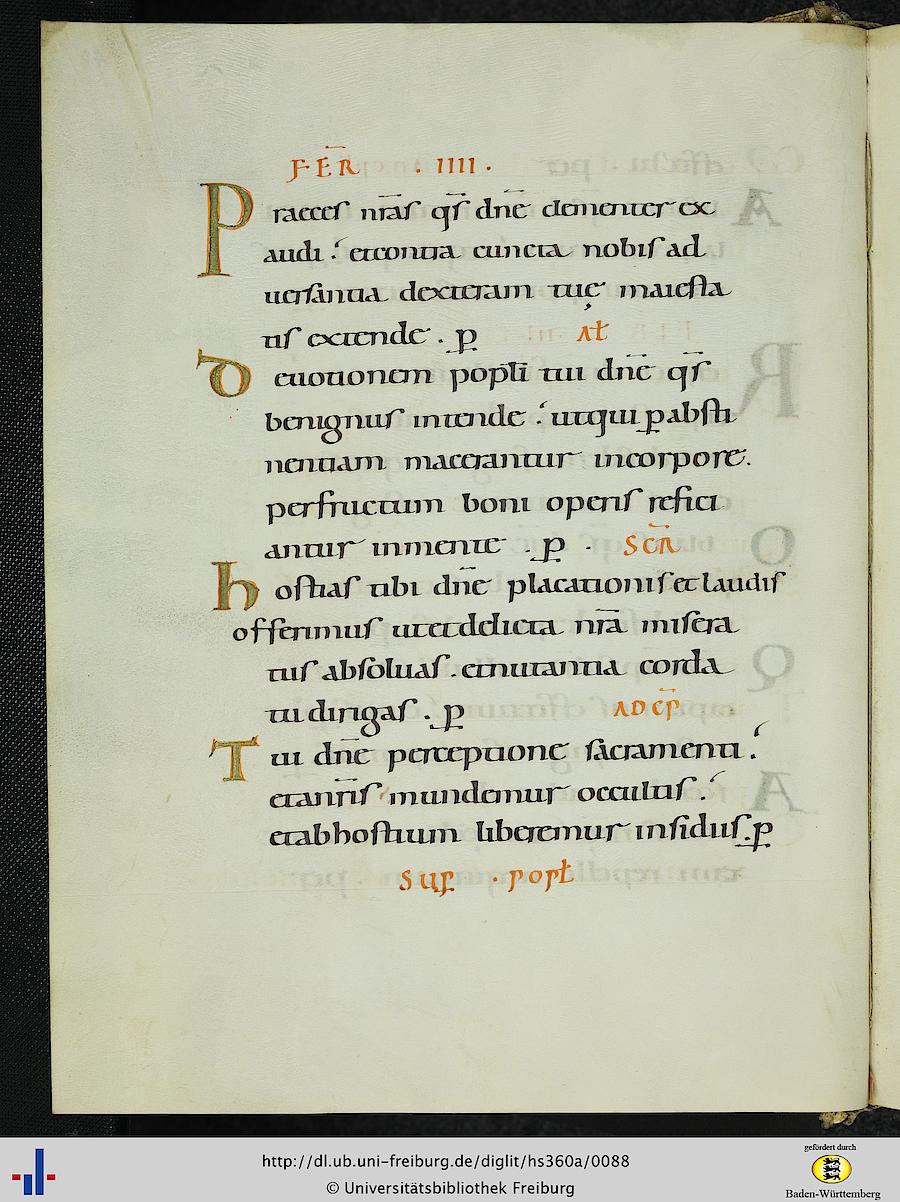 FER̄ · IIII ·
Praeces nr̄as qs̄ dn̄e clementer ex
audi ; et contra cuncta nobis ad
uersantia dexteram tuę maiesta
tis extende . ꝑ AŁ
Deuotionem popl̄i tui dn̄e qs̄
benignus intende ; ut qui ꝑ absti
nentiam macerantur in corpore .
per fructum boni operis refici
antur in mente . ꝑ . SCR̄
Hostias tibi dn̄e placationis et laudis
offerimus ut et delicta nr̄a misera
tus absoluas . et nutantia corda
tu dirigas . ꝑ AD CP̄
Tui dn̄e perceptione sacramenti ;
et a nr̄is mundemur occultis ;
et ab hostium liberemur insidiis . ꝑ
SUꝑ . POPŁ
http://dl.ub.uni-freiburg.de/diglit/hs360a/0088
© Universitätsbibliothek Freiburg
gefördert durch
Baden-Württemberg